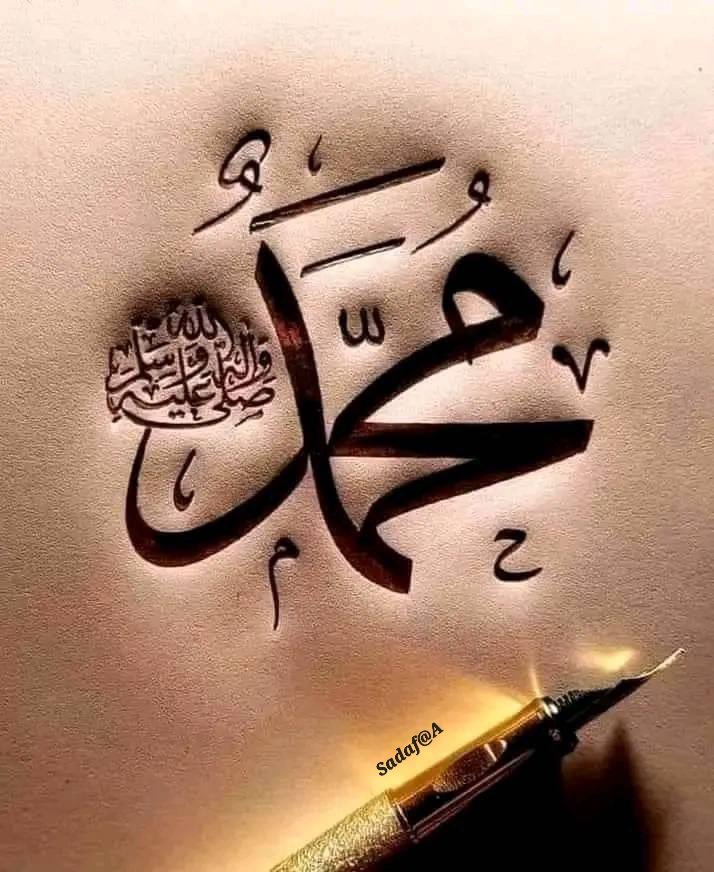 مُحَمَّدٌ
صلى الله عليه وآله وسلم
Sadaf@A